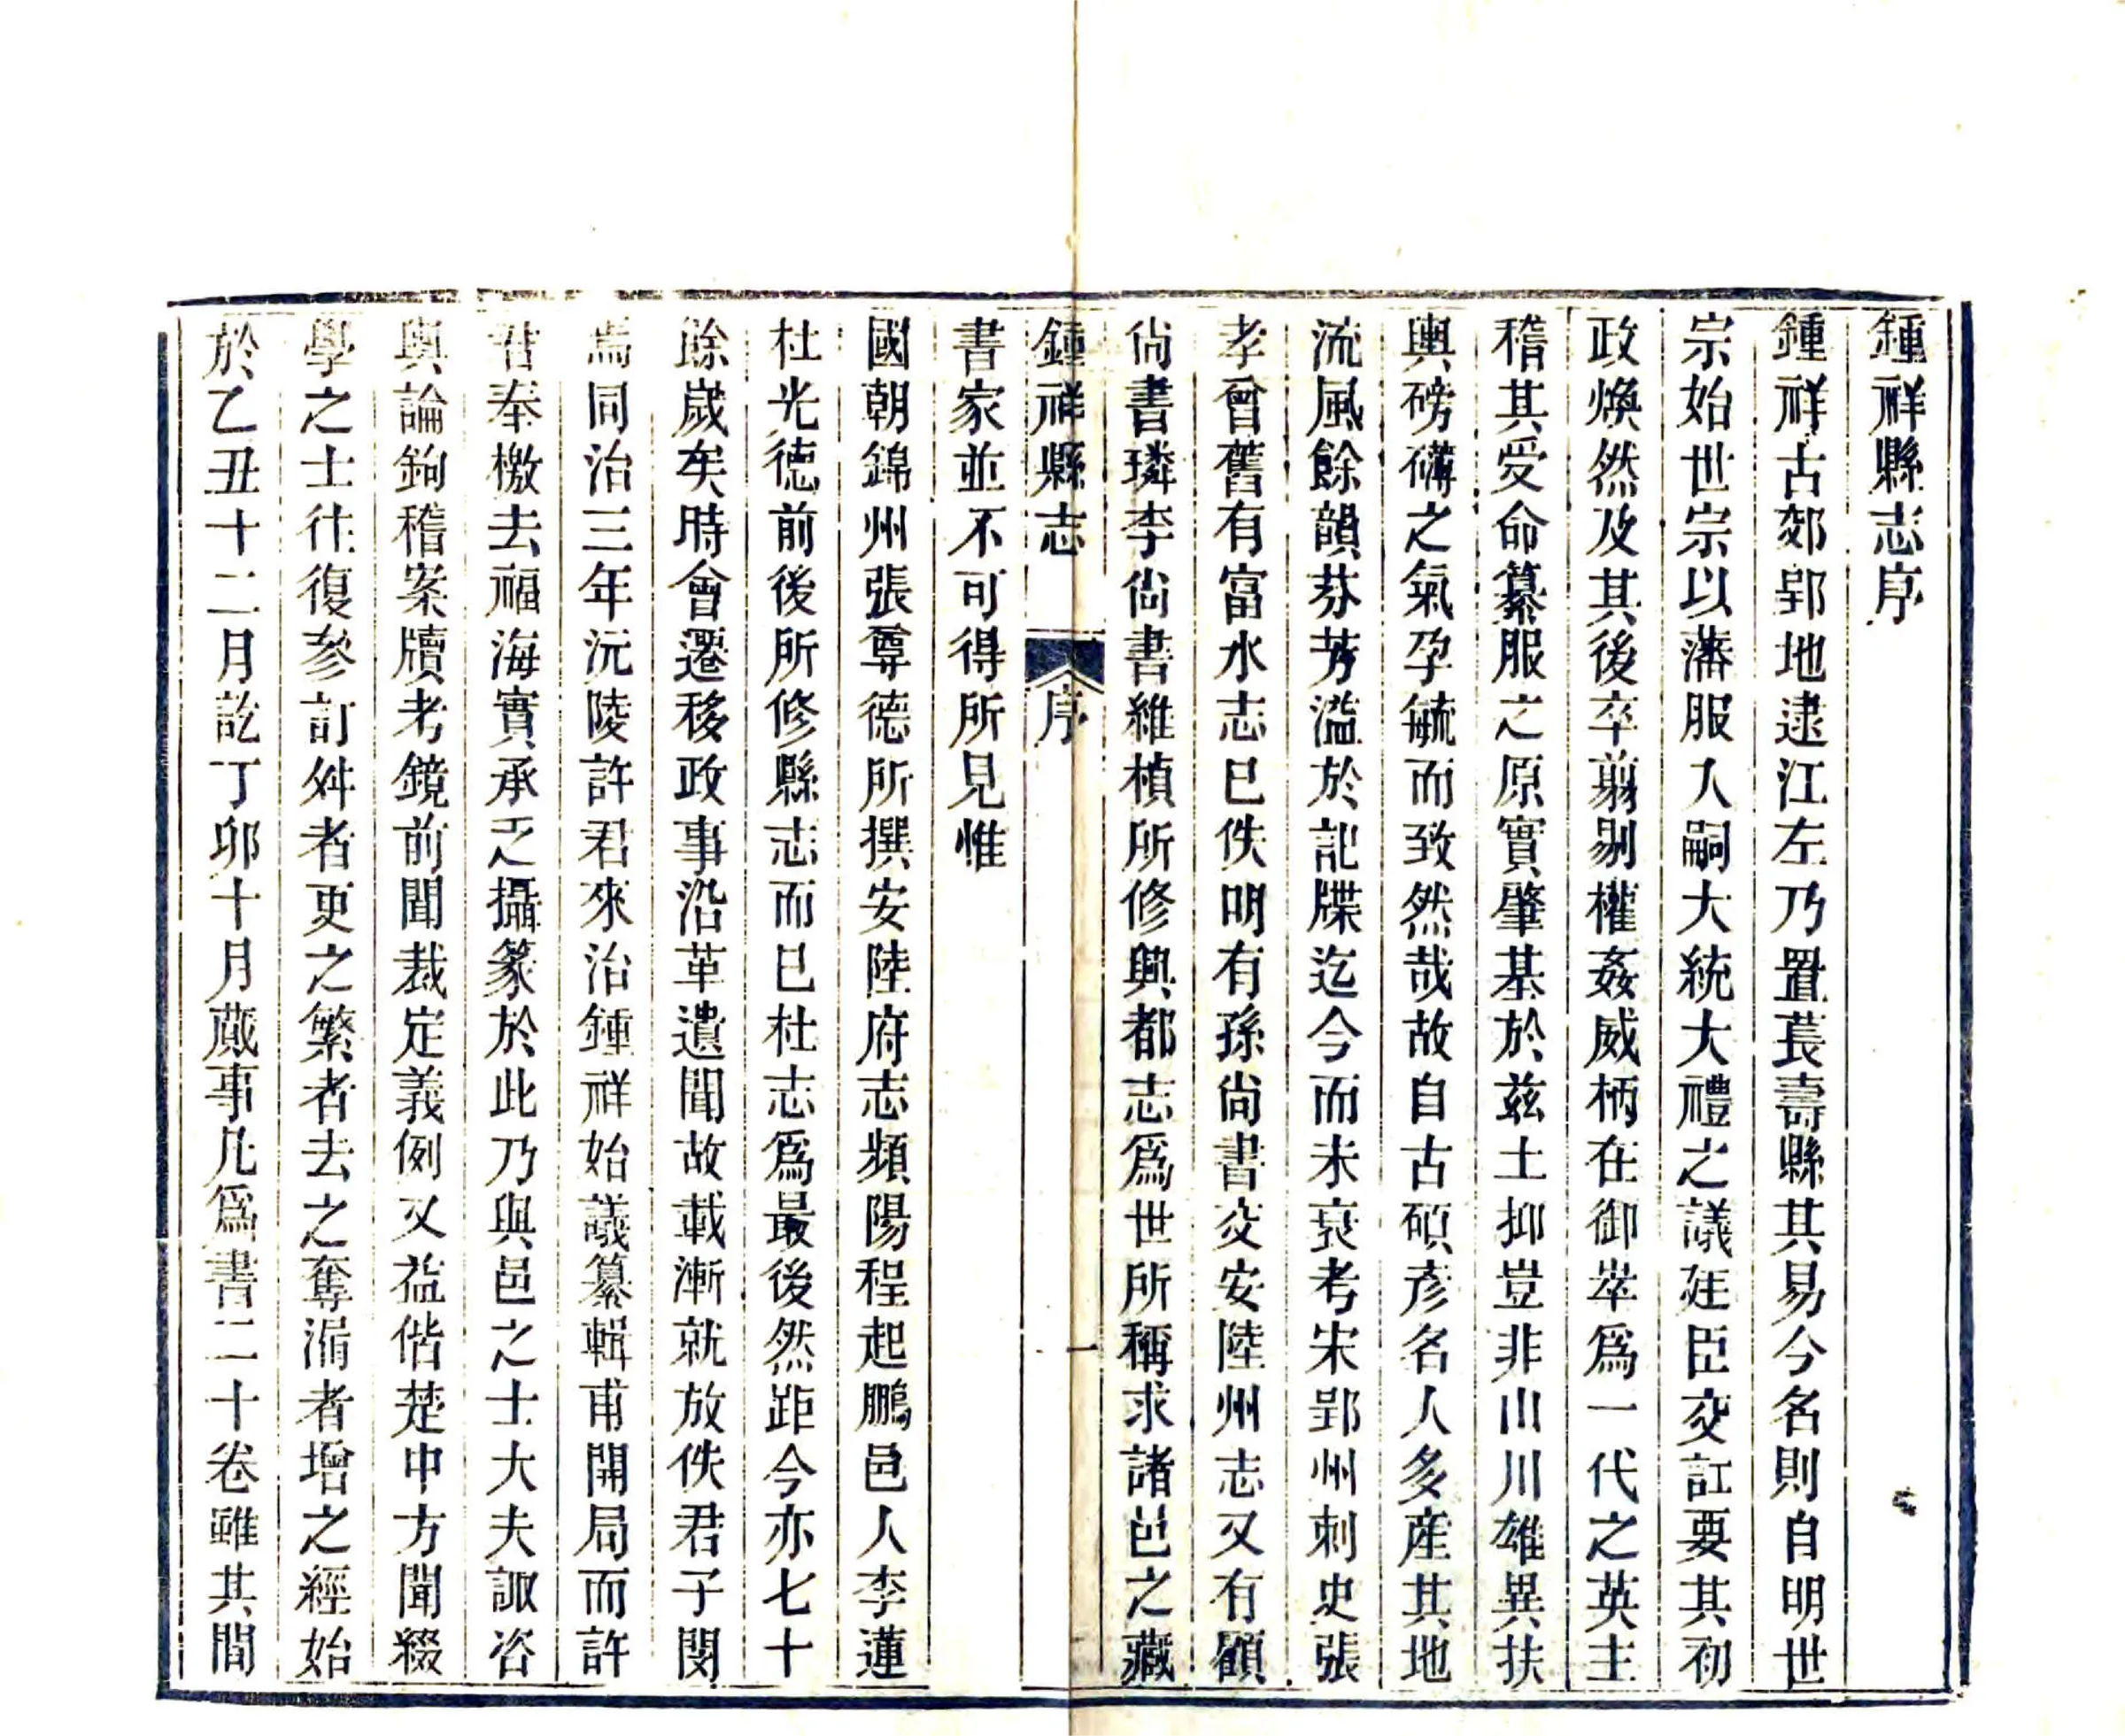 鍾祥縣志序
鍾祥古郊郢地逮江左乃置萇壽縣其易今名則自明世
宗始世宗以藩服入嗣大統大禮之議廷臣交訌要其初
政煥然及其後卒剪剔權姦威柄在御崒爲一代之英主
稽其受命纂服之原實肇基於兹土抑豈非山川雄異扶
輿磅礴之氣孕毓而致然哉故自古碩彥名人多產其地
流風餘韻芬芳溢於記牒迄今而未衰考宋郢州刺史張
孝曾舊有富水志已佚明有孫尙書交安陸州志又有顧
尙書璘李尙書維楨所修興都志爲世所稱求諸邑之藏
鍾祥縣志 序 一
書家並不可得所見惟
國朝錦州張尊德所撰安陸府志頻陽程起鵬邑人李蓮
杜光德前後所修縣志而已杜志爲最後然距今亦七十
餘歲矣時會遷移政事沿革遺聞故載漸就放佚君子閔
焉同治三年沅陵許君來治鍾祥始議纂輯甫開局而許
君奉檄去福海實承乏攝篆於此乃與邑之士大夫諏咨
輿論鉤稽案牘考鏡前聞裁定義例又益偕楚中方聞綴
學之士往復參訂舛者更之繁者去之奪漏者增之經始
於乙丑十二月訖丁卯十月蕆事凡爲書二十卷雖其間